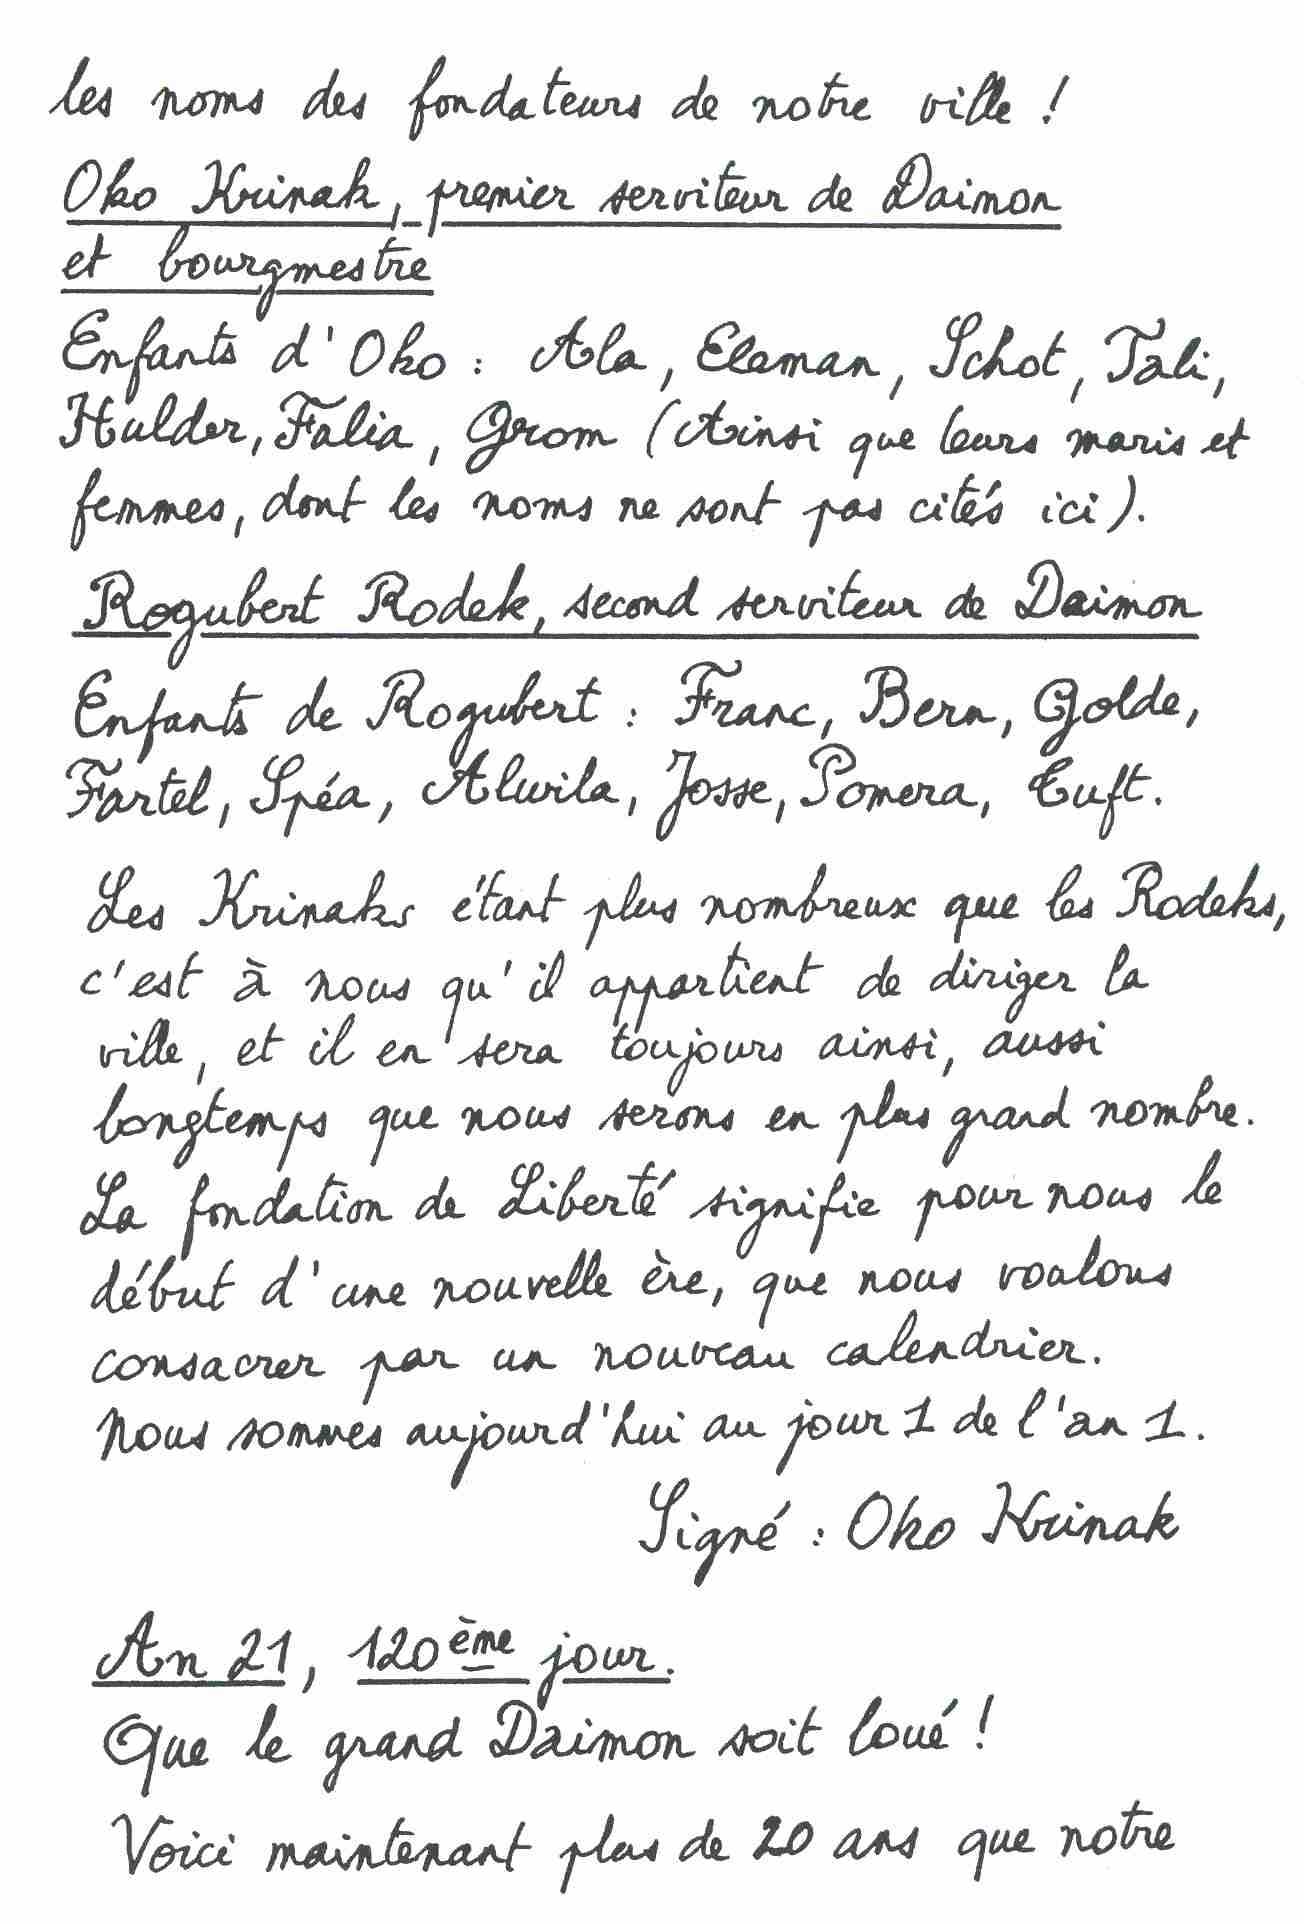 les noms des fondateurs de notre ville !
Oko Krinak, premier serviteur de Daimon
et bourgmestre
Enfants d'Oko : Ala, Elaman, Schot, Tali,
Hulder, Falia, Grom (Ainsi que leurs maris et
femmes, dont les noms ne sont pas cités ici).
Rogubert Rodek, second serviteur de Daimon
Enfants de Rogubert : Franc, Bern, Golde,
Fartel, Spéa, Alwila, Josse, Pomera, Euft.
Les Krinaks étant plus nombreux que les Rodeks,
c'est à nous qu'il appartient de diriger la
ville, et il en sera toujours ainsi, aussi
longtemps que nous serons en plus grand nombre.
La fondation de Liberté signifie pour nous le
début d'une nouvelle ère, que nous voulons
consacrer par un nouveau calendrier.
Nous sommes aujourd'hui au jour 1 de l'an 1.
Signé : Oko Krinak
An 21, 120ème jour.
Que le grand Daimon soit loué !
Voici maintenant plus de 20 ans que notre